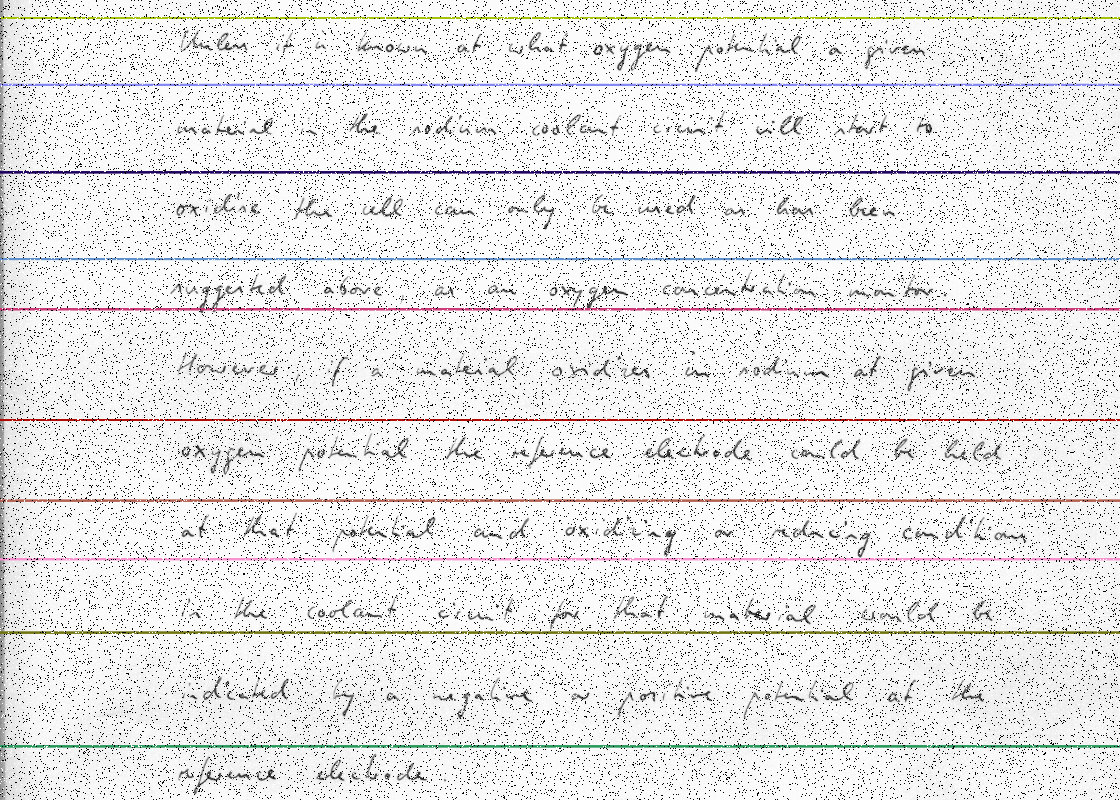 Unless it is known at what oxygen potential a given
material in the sodium coolant circuit will start to
oxidise the cell can only be used as has been
suggested above, as an oxygen concentration monitor.
However, if a material oxidises in sodium at given
oxygen potential the reference electrode could be held
at that potential and oxidizing or reducing conditions
in the coolant circuit for that material would be
indicated by a negative or positive potential at the
reference electrode